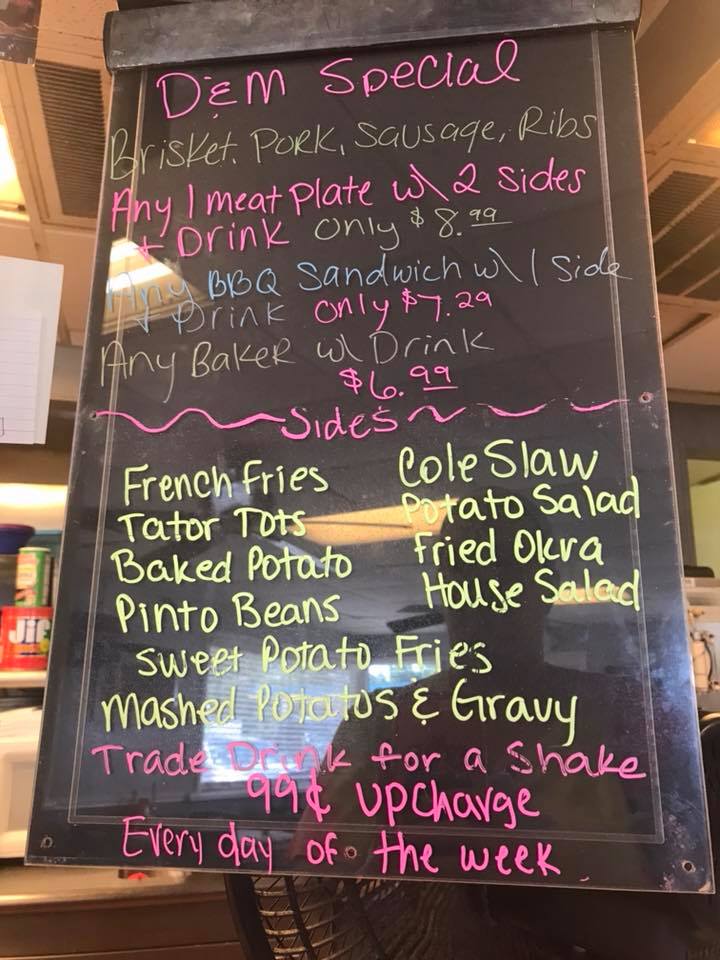 D&M Special
Brisket, Pork, Sausage, Ribs
Any 1 meat Plate w\ 2 Sides
+ Drink only $8.99
Any BBQ Sandwich w\ 1 Side
+ Drink only $7.29
Any Baker w\ Drink
$6.99
Sides
French Fries
Tator Tots
Baked Potato
Pinto Beans
Cole Slaw
Potato Salad
Fried Okra
House Salad
Sweet Potato Fries
Mashed Potatos & Gravy
Trade Drink for a Shake
99¢ upcharge
Every day of the week
Jif